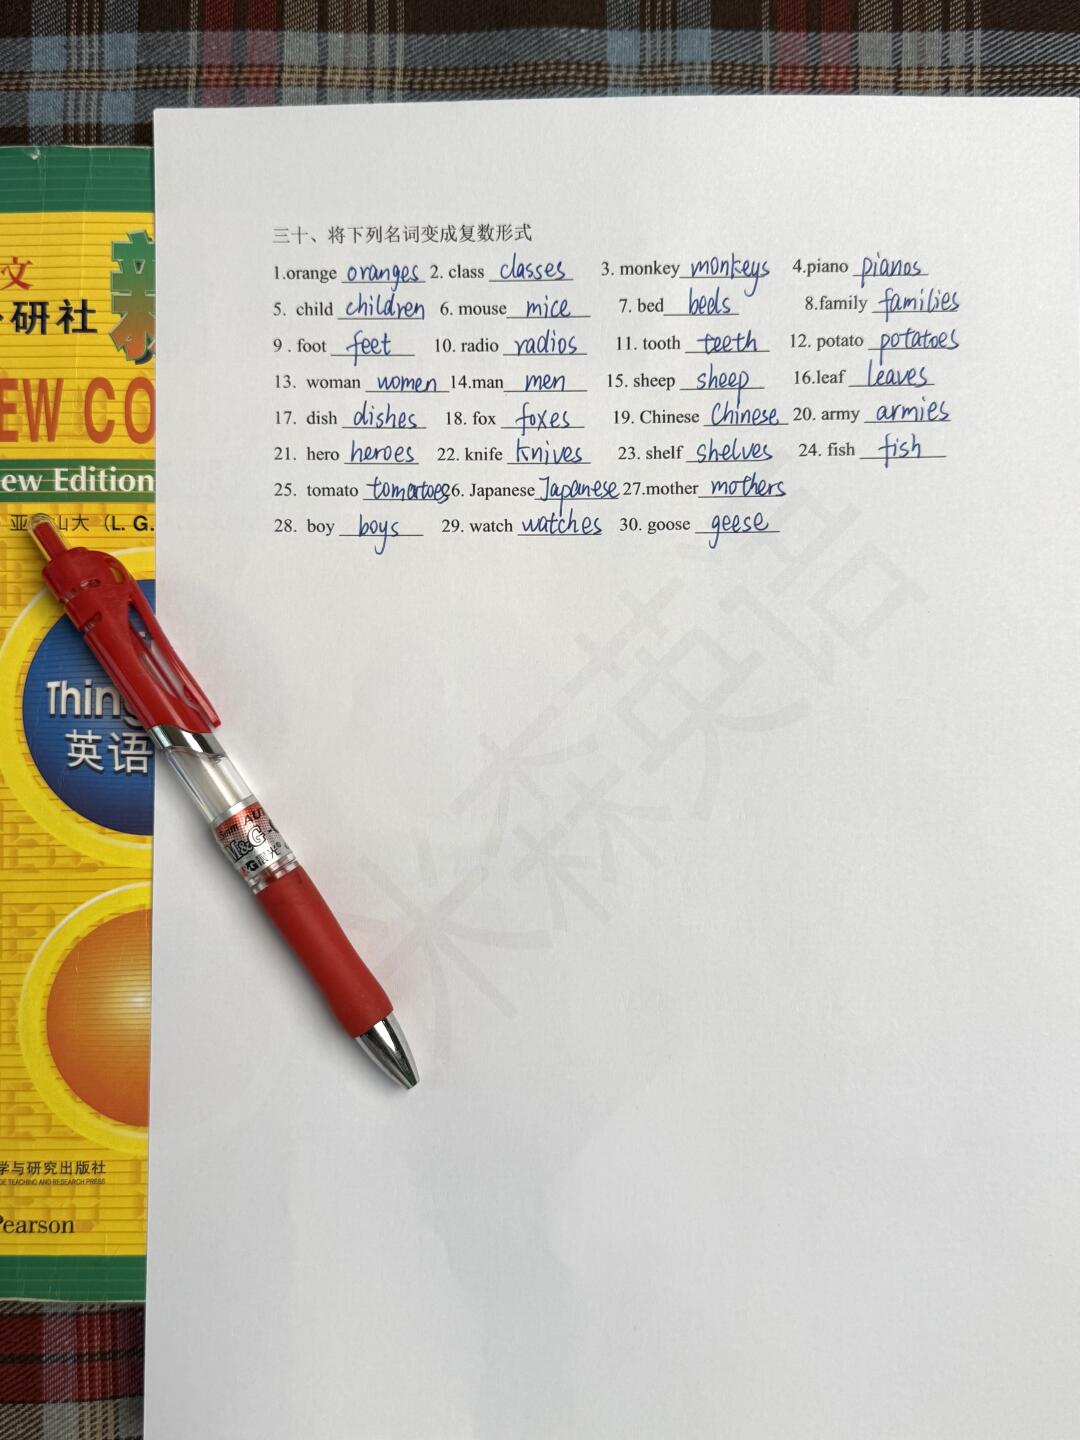 三十、将下列名词变成复数形式
1.orange oranges 2. class classes 3. monkey monkeys 4.piano pianos
5. child children 6. mouse mice 7. bed beds 8.family families
9 . foot feet 10. radio radios 11. tooth teeth 12. potato potatoes
13. woman women 14.man men 15. sheep sheep 16.leaf leaves
17. dish dishes 18. fox foxes 19. Chinese Chinese 20. army armies
21. hero heroes 22. knife knives 23. shelf shelves 24. fish fish
25. tomato tomatoes 26. Japanese Japanese 27.mother mothers
28. boy boys 29. watch watches 30. goose geese
米森英语
文 新
研社
EW CO
ew Edition
亚 山大 (L. G.
Thing
英语
M&G
M&G 晨光
学与研究出版社
TEACHING AND RESEARCH PRESS
Pearson